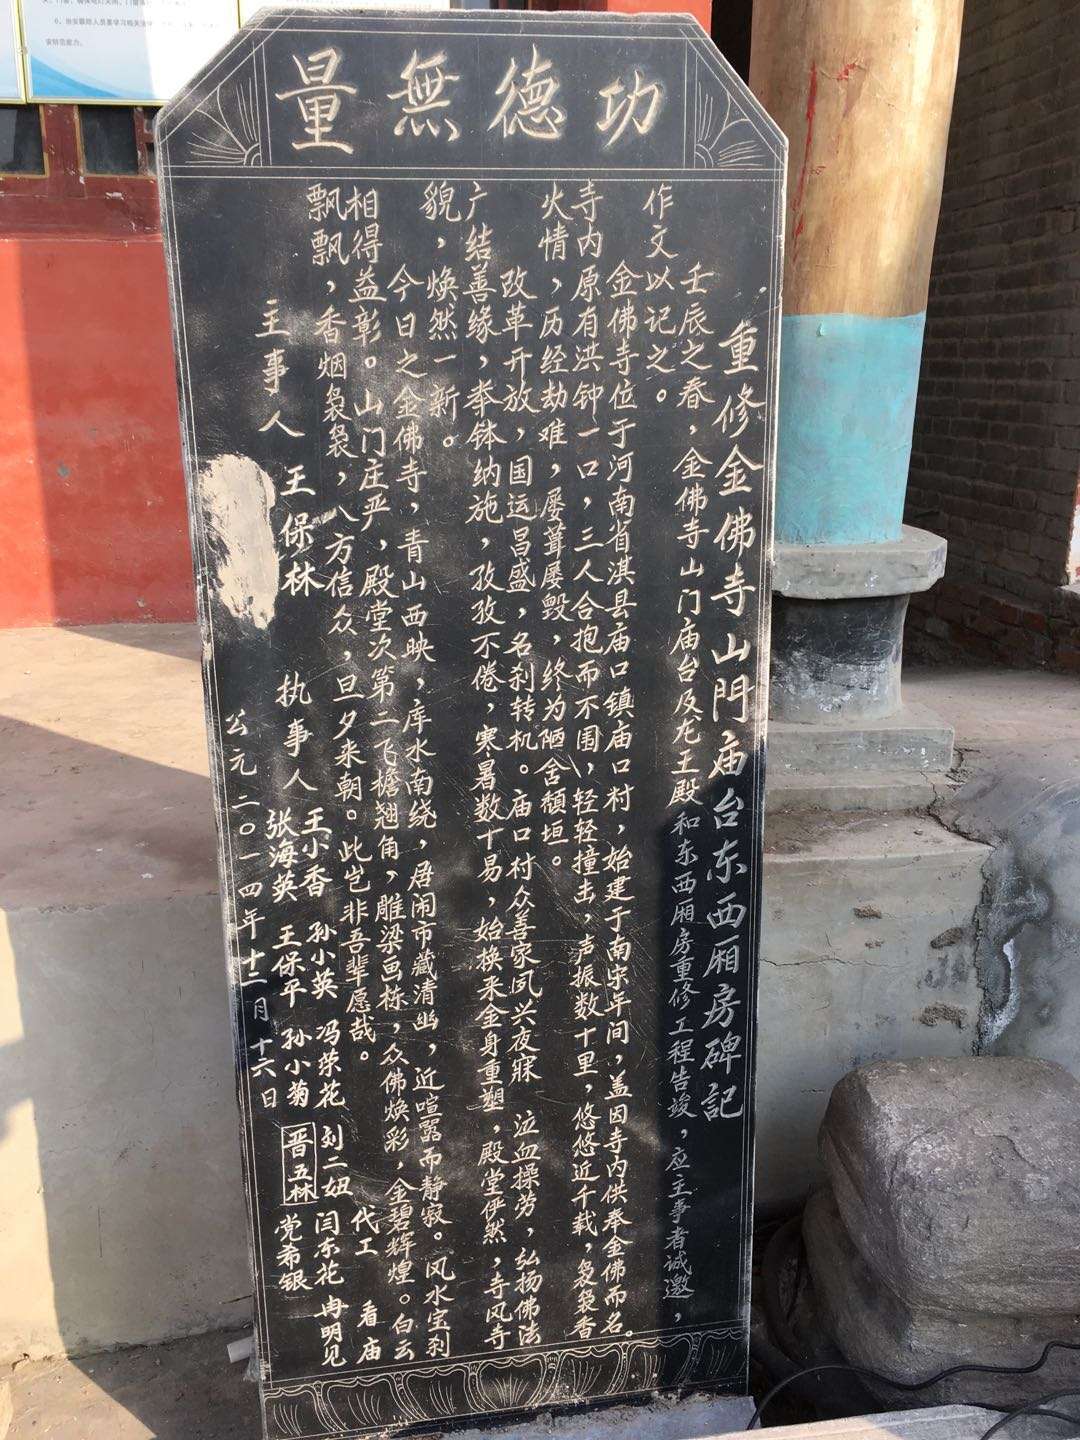 功德無量
重修金佛寺山門庙台东西厢房碑記
壬辰之春，金佛寺山门庙台及龙王殿和东西厢房重修工程告竣，应主事者诚邀，
作文以记之。
金佛寺位于河南省淇县庙口镇庙口村，始建于南宋年间，盖因寺内供奉金佛而名。
寺内原有洪钟一口，三人合抱而不围，轻轻撞击，声振数十里，悠悠近千载，袅袅香
火情，历经劫难，屡葺屡毁，终为陋舍颓垣。
改革开放，国运昌盛，名刹转机。庙口村众善家夙兴夜寐 泣血操劳，弘扬佛法
广结善缘，奉钵纳施，孜孜不倦，寒暑数十易，始换来金身重塑，殿堂俨然，寺风寺
貌，焕然一新。
今日之金佛寺，青山西映，库水南绕，居闹市藏清幽，近喧嚣而静寂。风水宝刹
相得益彰。山门庄严，殿堂次第二飞檐翘角，雕梁画栋，众佛焕彩，金碧辉煌。白云
飘飘，香烟袅袅，八方信众，旦夕来朝。此岂非吾辈愿哉。
代工 看庙
主事人 王保林 执事人 王小香 孙小英 冯荣花 刘二妞 闫东花 冉明见
张海英 王保平 孙小菊 晋五林 党希银
公元二〇一四年十二月十六日